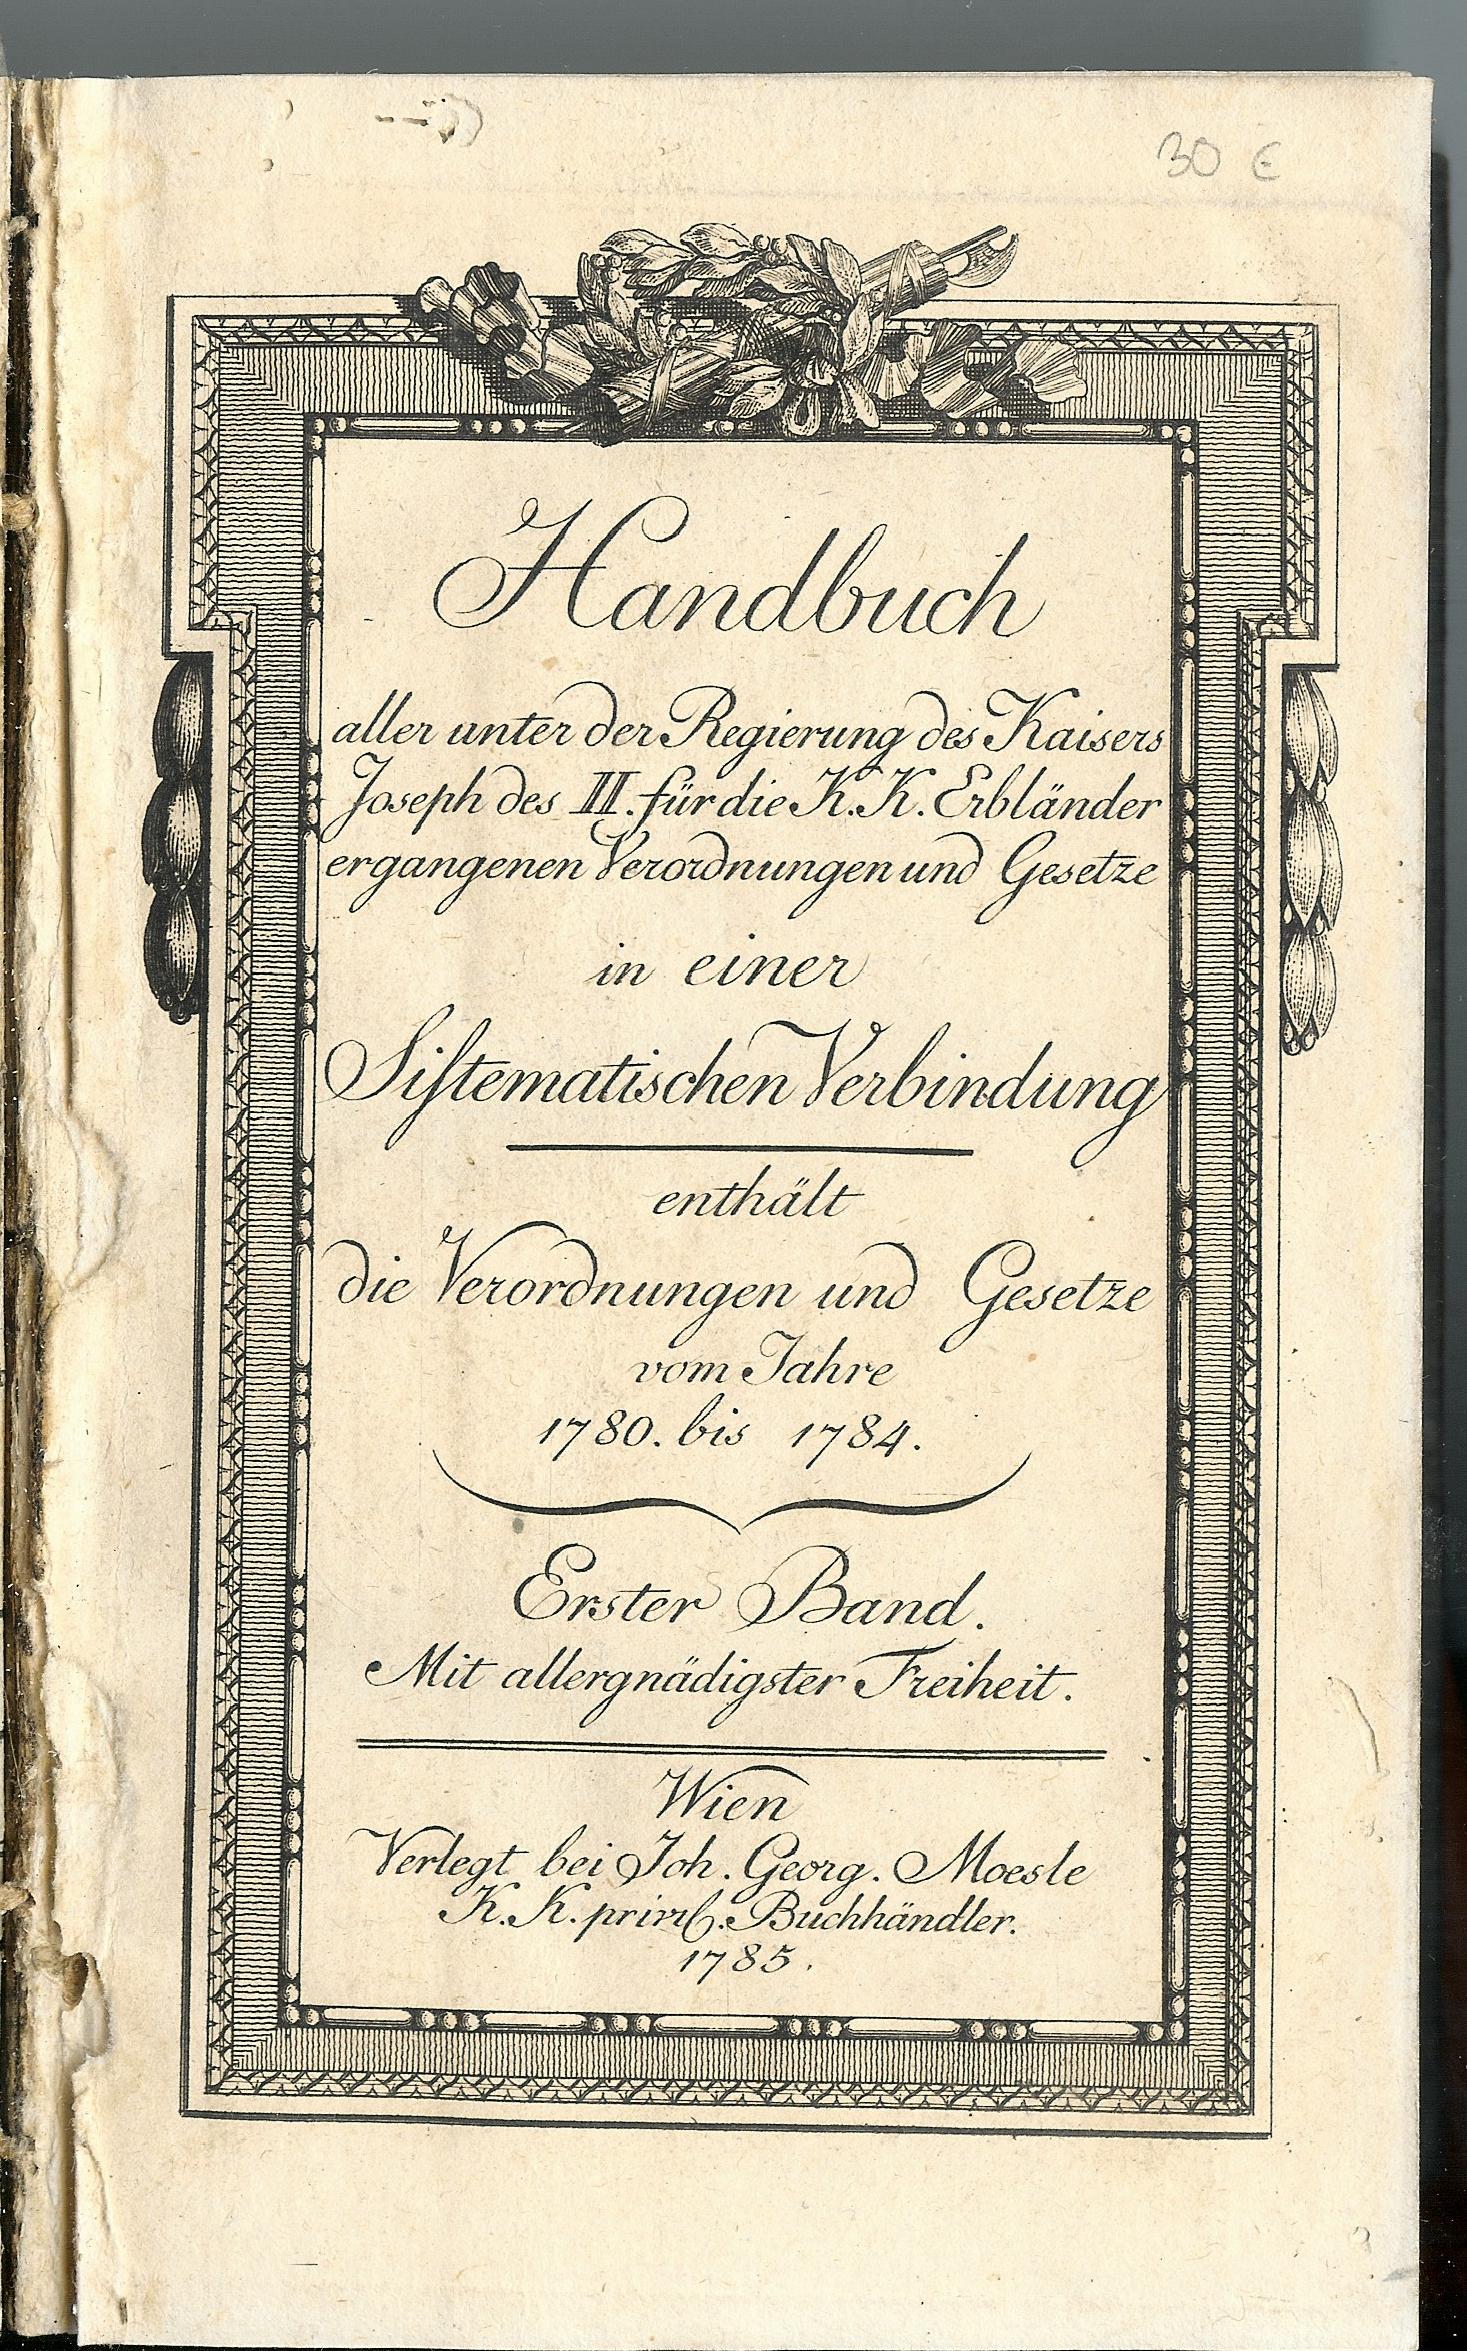 30 €
Handbuch
aller unter der Regierung des Kaisers
Joseph des II. für die K. K. Erbländer
ergangenen Verordnungen und Gesetze
in einer
Siſtematischen Verbindung
enthält
die Verordnungen und Gesetze
vom Jahre
1780. bis 1784.
Erster Band.
Mit allergnädigster Freiheit.
Wien
Verlegt bei Joh. Georg. Moesle
K. K. privil. Buchhändler.
1785.